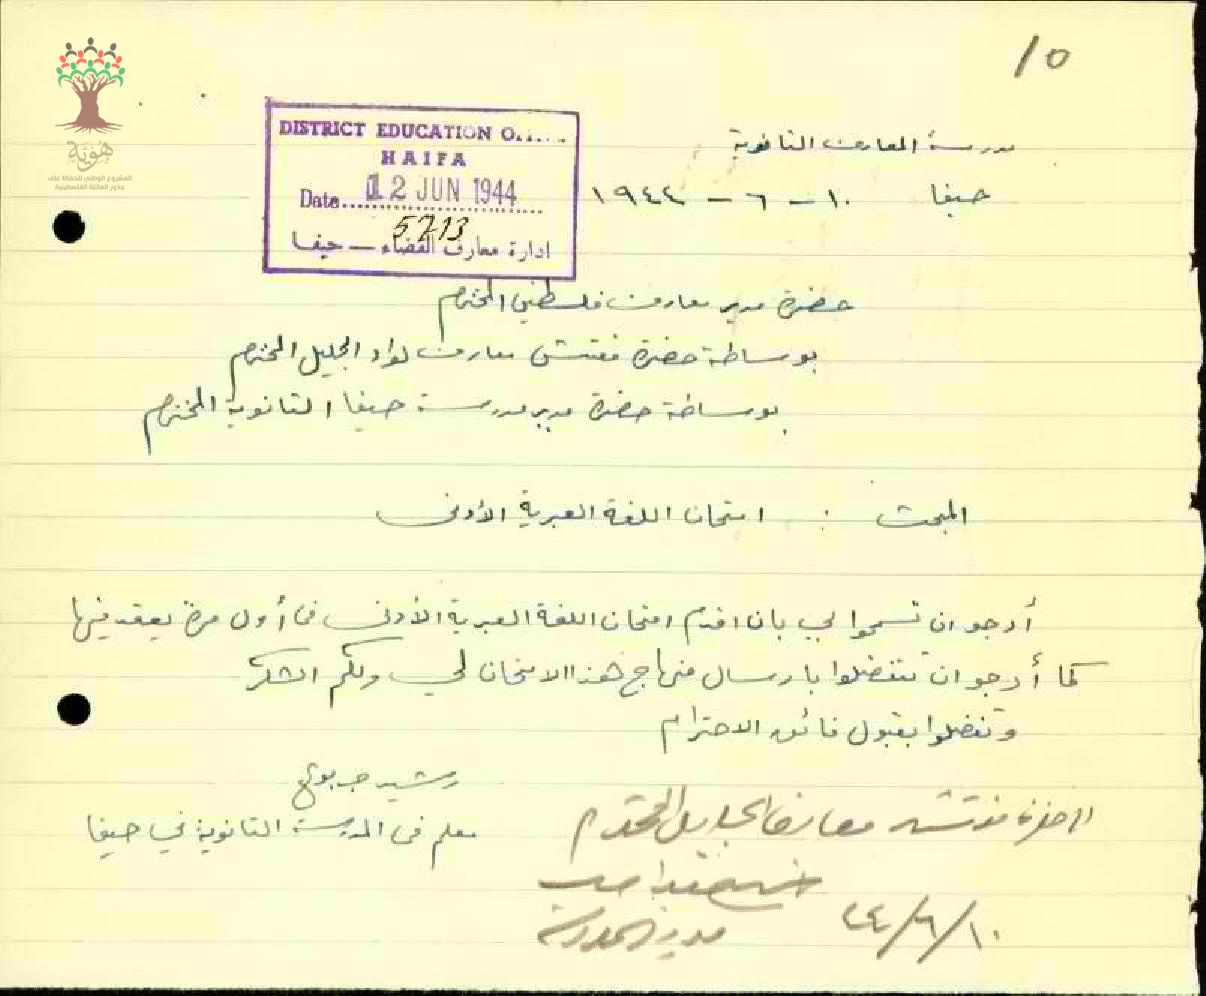 10
هوية
المشروع الوطني للحفاظ على
جذور العائلة الفلسطينية
DISTRICT EDUCATION O....
HAIFA
Date
12 JUN 1944
5213
ادارة معارف القضاء – حيفا
مدرسة المعارف الثانوية
حيفا ١٠ – ٦ – ١٩٤٤
حضرة مدير معارف فلسطين المحترم
بوساطة حضرة مفتش معارف لواء الجليل المحترم
بوساطة حضرة مدير مدرسة حيفا الثانوية المحترم
المبحث : امتحان اللغة العبرية الأدنى
أرجو ان تسمحوا لي بان اقدم امتحان اللغة العبرية الأدنى في أول مرة يعقد فيها
كما أرجو ان تتفضلوا بارسال منهاج هذا الامتحان لي ولكم الشكر
وتفضلوا بقبول فائق الاحترام
رشيد
معلم في المدرسة الثانوية في حيفا
حضرة مفتش معارف الجليل المحترم
مدير المدرسة
٤٤/٦/١٠